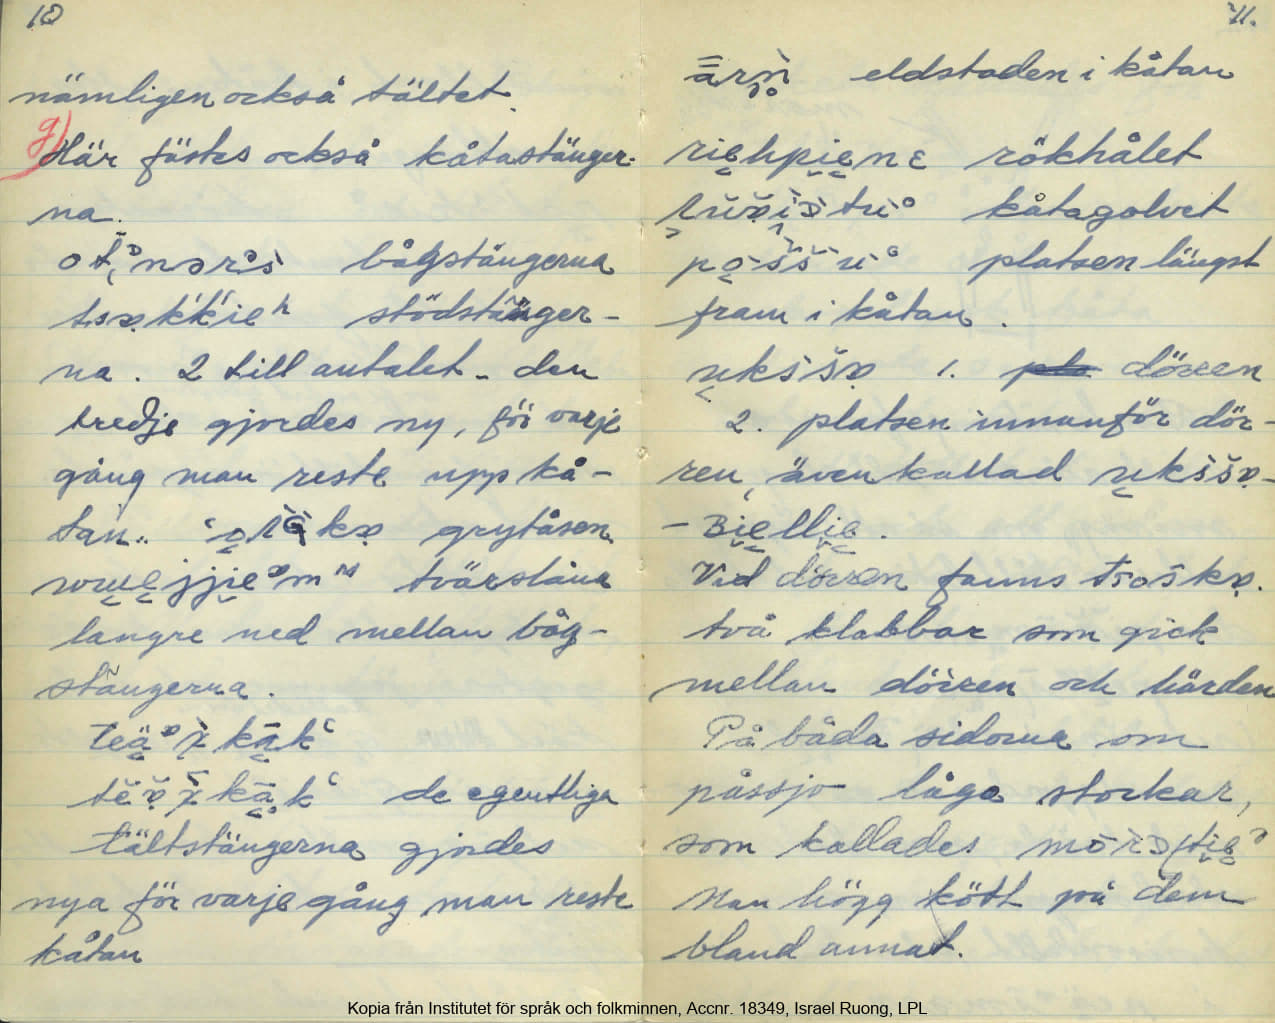 10
nämligen också tältet.
g)
Här fästes också kåtastänger-
na.
bågstängerna
stödstänger-
na. 2 till antalet - den
tredje gjordes ny, för varje
gång man reste upp kå-
tan. grytåsen
tvärslåna
längre ned mellan båg-
stängerna.
de egentliga
tältstängerna gjordes
nya för varje gång man reste
kåtan
11.
eldstaden i kåtan
rökhålet
kåtagolvet
platsen längst
fram i kåtan.
1. dörren
2. platsen innanför dör-
ren, även kallad
Vid dörren fanns
två klabbar som gick
mellan dörren och härden
På båda sidorna om
påssjo låga stockar,
som kallades
Man högg kött på dem
bland annat.
Kopia från Institutet för språk och folkminnen, Accnr. 18349, Israel Ruong, LPL